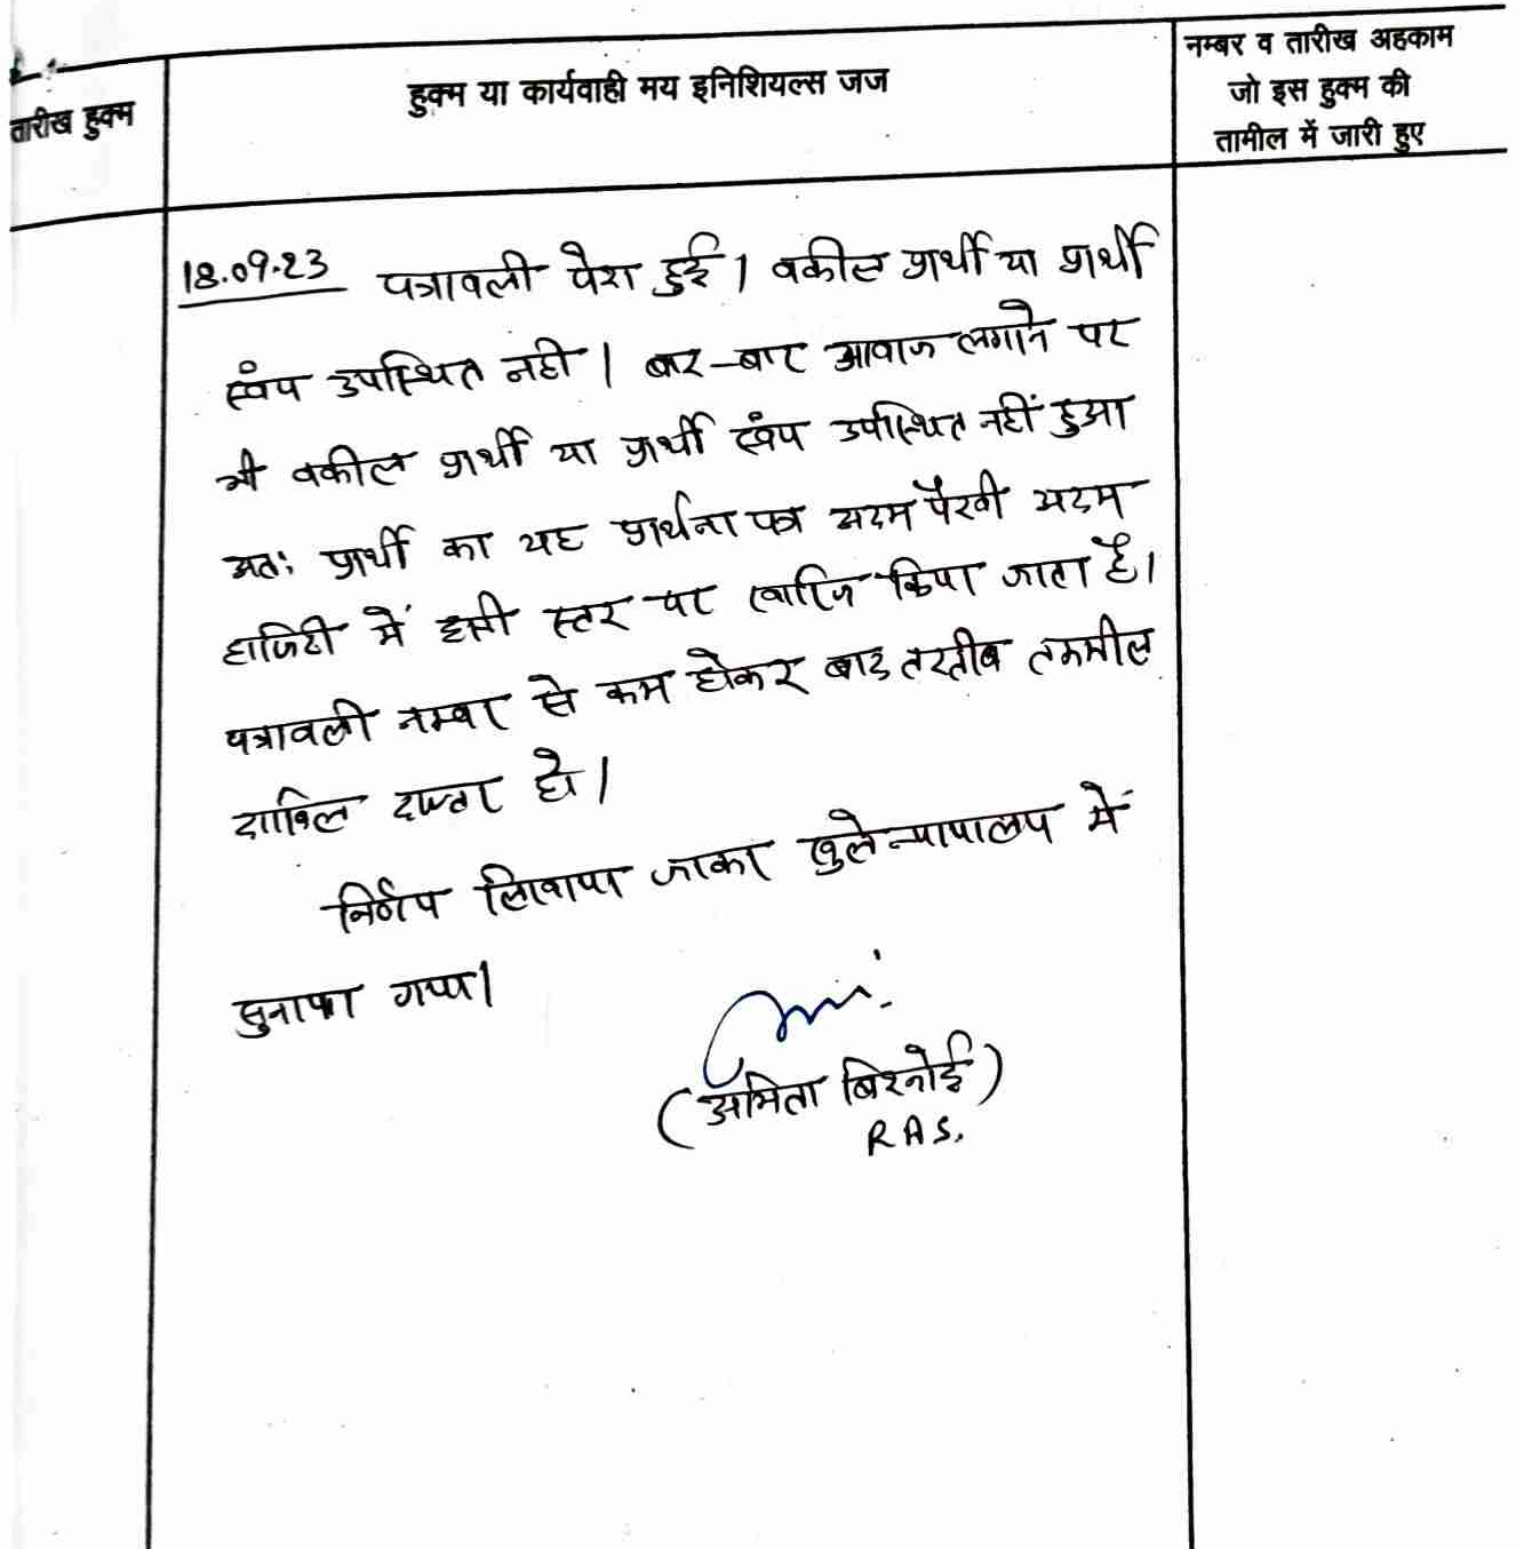 तारीख हुक्म
हुक्म या कार्यवाही मय इनिशियल्स जज
नम्बर व तारीख अहकाम
जो इस हुक्म की
तामील में जारी हुए
18.09.23 पत्रावली पेश हुई। वकील प्रार्थी या प्रार्थी
स्वंय उपस्थित नही। बार-बार आवाज लगाने पर
भी वकील प्रार्थी या प्रार्थी स्वंय उपस्थित नहीं हुआ
अतः प्रार्थी का यह प्रार्थना पत्र अदम पैरवी अदम
हाजिरी में इसी स्तर पर खारिज किया जाता है।
पत्रावली नम्बर से कम होकर बाद तरतीब तकमील
दाखिल दफ्तर हो।
निर्णय लिखाया जाकर खुले न्यायालय में
सुनाया गया।
(अमिता बिश्नोई)
RAS.